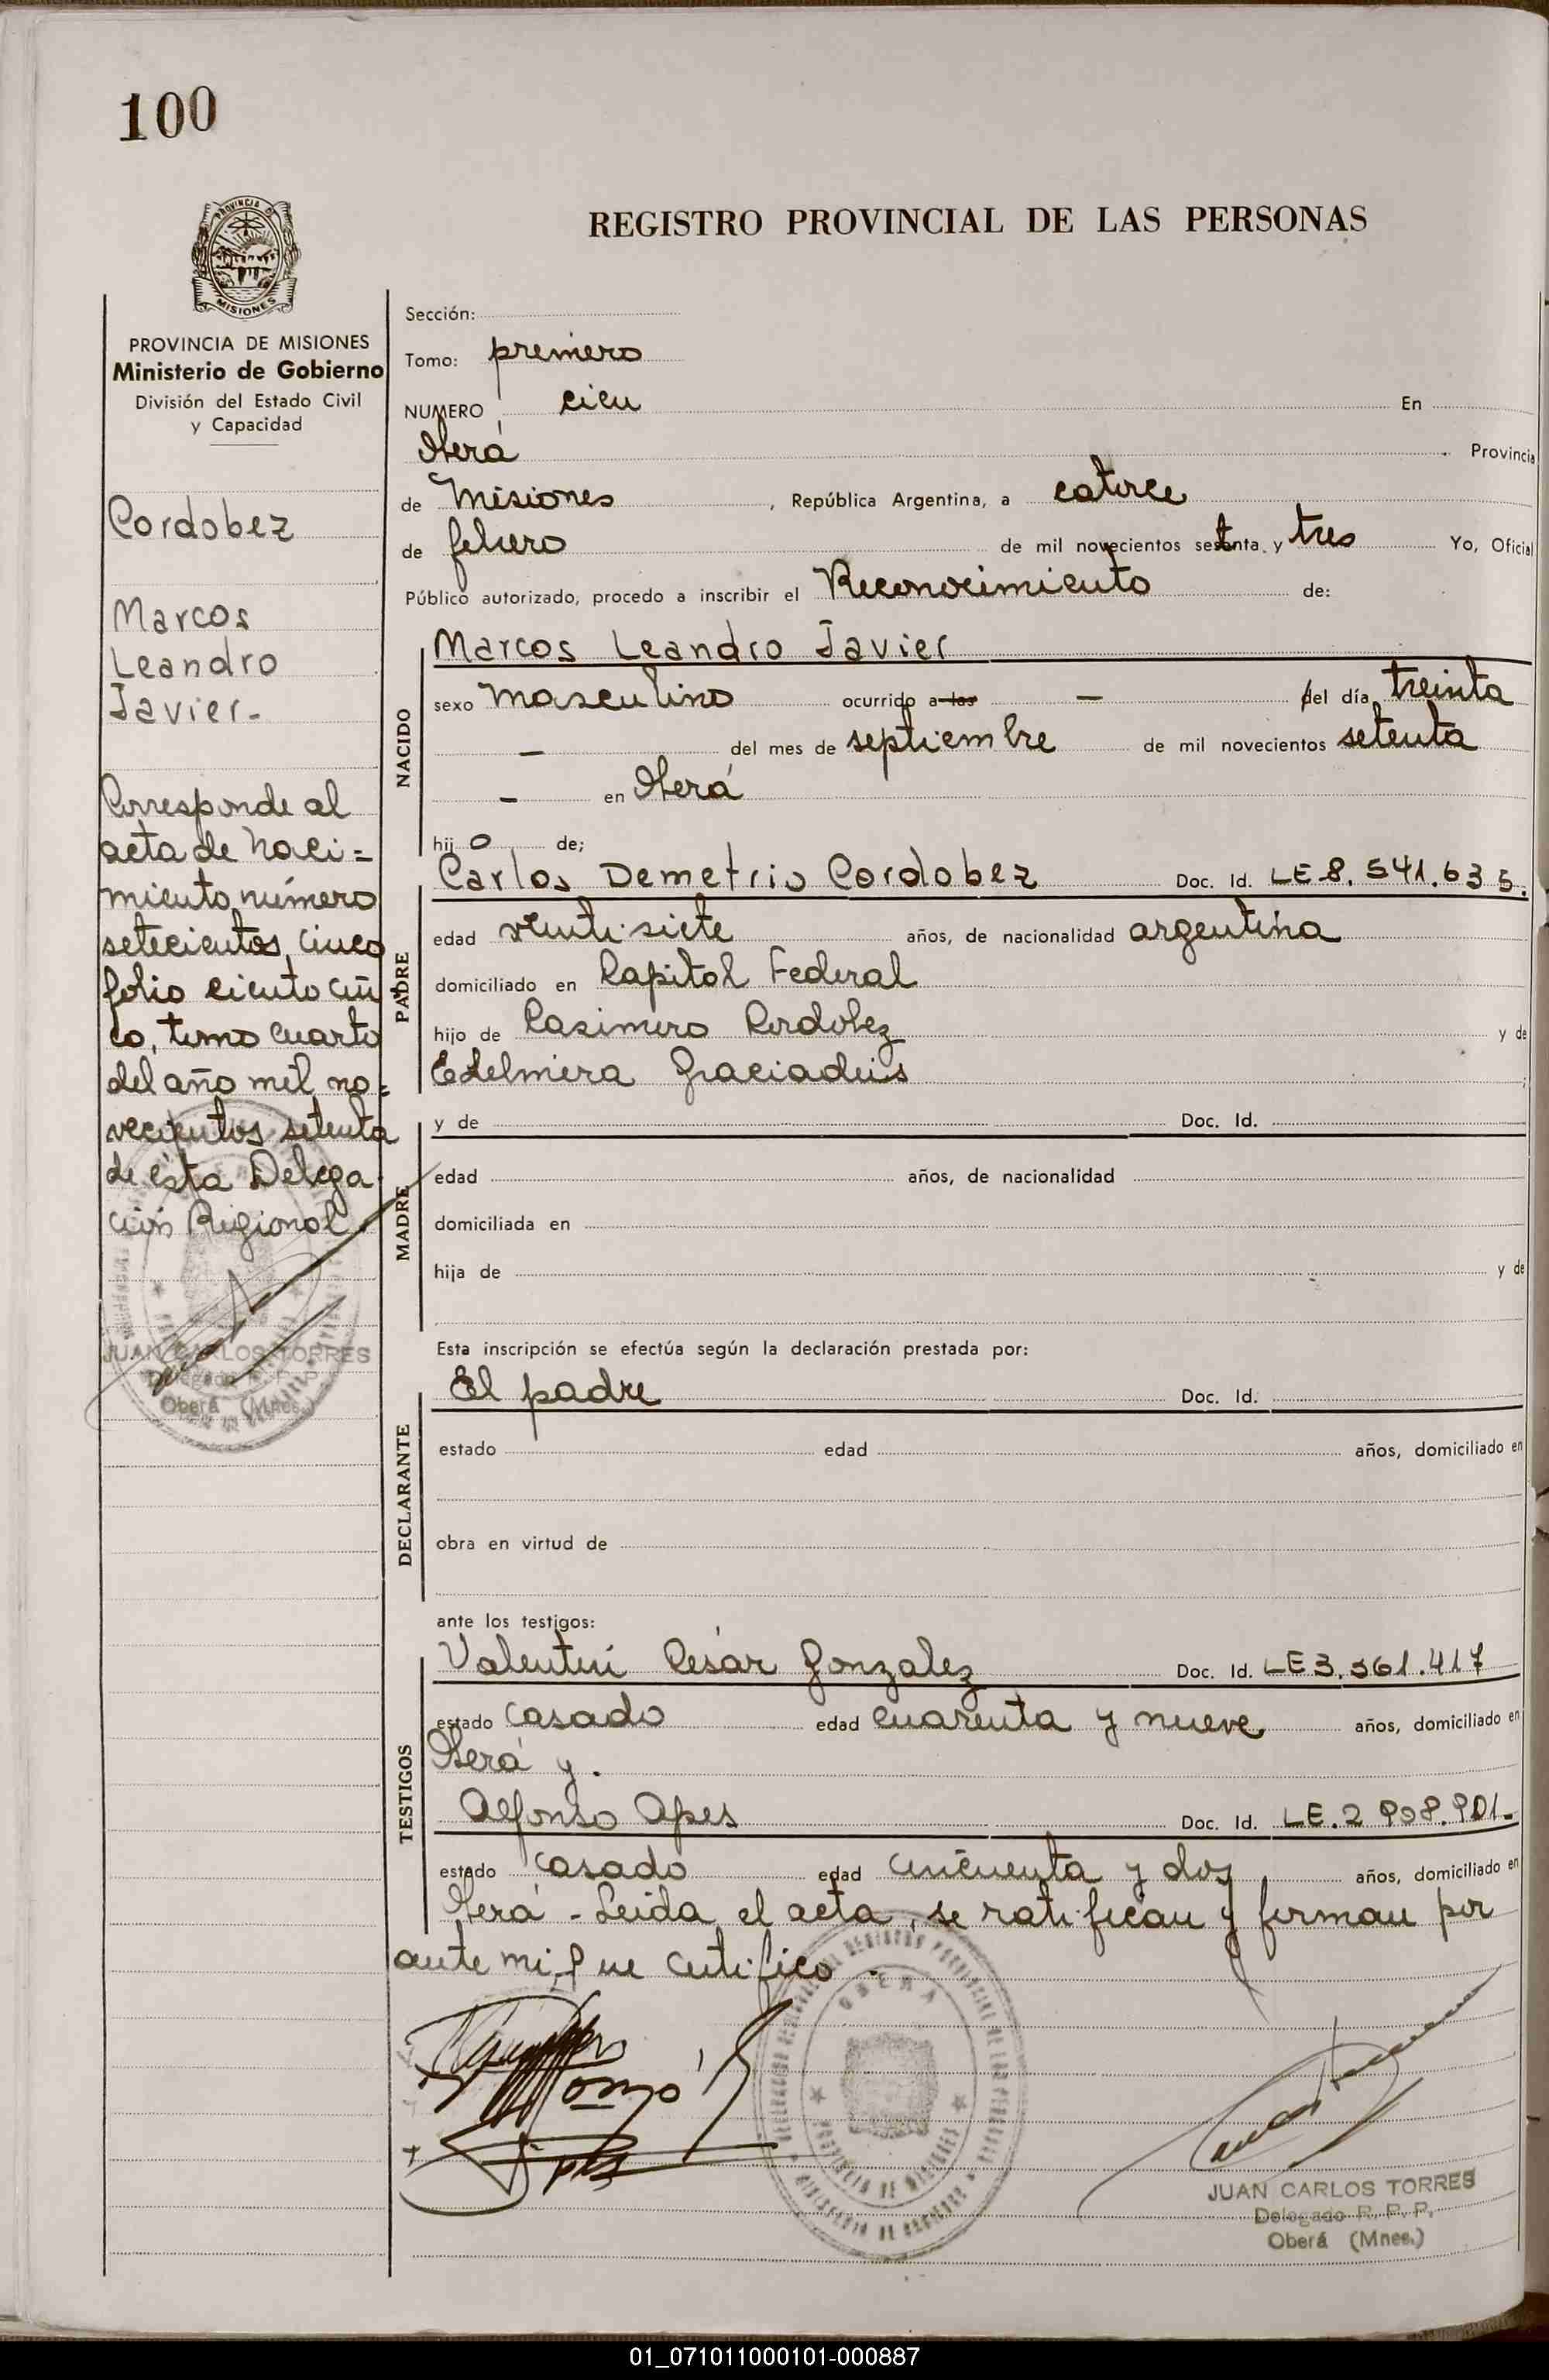 100
PROVINCIA DE
MISIONES
PROVINCIA DE MISIONES
Ministerio de Gobierno
División del Estado Civil
y Capacidad
Cordobez
Marcos
Leandro
Javier-
Corresponde al
acta de naci=
miento número
setecientos cinco
folio ciento cin
co, tomo cuarto
del año mil no=
vecientos setenta
de ésta Delega
ción Regional
JUAN CARLOS TORRES
Delegado R. P. P.
Oberá (Mnes.)
REGISTRO PROVINCIAL DE LAS PERSONAS
Sección:
Tomo: primero
NUMERO cien En
Oberá Provincia
de Misiones, República Argentina, a catorce
de febrero de mil novecientos setenta y tres Yo, Oficial
Público autorizado, procedo a inscribir el Reconocimiento de:
NACIDO
Marcos Leandro Javier
sexo masculino ocurrido a las - del día treinta
- del mes de septiembre de mil novecientos setenta
- en Oberá
hijo de;
PADRE
Carlos Demetrio Cordobez Doc. Id. LE 8.541.635.
edad veintisiete años, de nacionalidad argentina
domiciliado en Capital Federal
hijo de Casimiro Cordobez y de
Edelmira Graciadeis
MADRE
y de Doc. Id.
edad años, de nacionalidad
domiciliada en
hija de y de
Esta inscripción se efectúa según la declaración prestada por:
DECLARANTE
El padre Doc. Id.
estado edad años, domiciliado en
obra en virtud de
ante los testigos:
TESTIGOS
Valentín César Gonzalez Doc. Id. LE 3.361.417
estado casado edad cuarenta y nueve años, domiciliado en
Oberá y.
Alfonso Apes Doc. Id. LE.2 908.901-
estado casado edad cincuenta y dos años, domiciliado en
Oberá - Leida el acta, se ratifican y firman por
ante mi que certifico -
OBERA
PROVINCIA DE MISIONES
JUAN CARLOS TORRES
Delegado R. P. P.
Oberá (Mnes.)
01_071011000101-000887